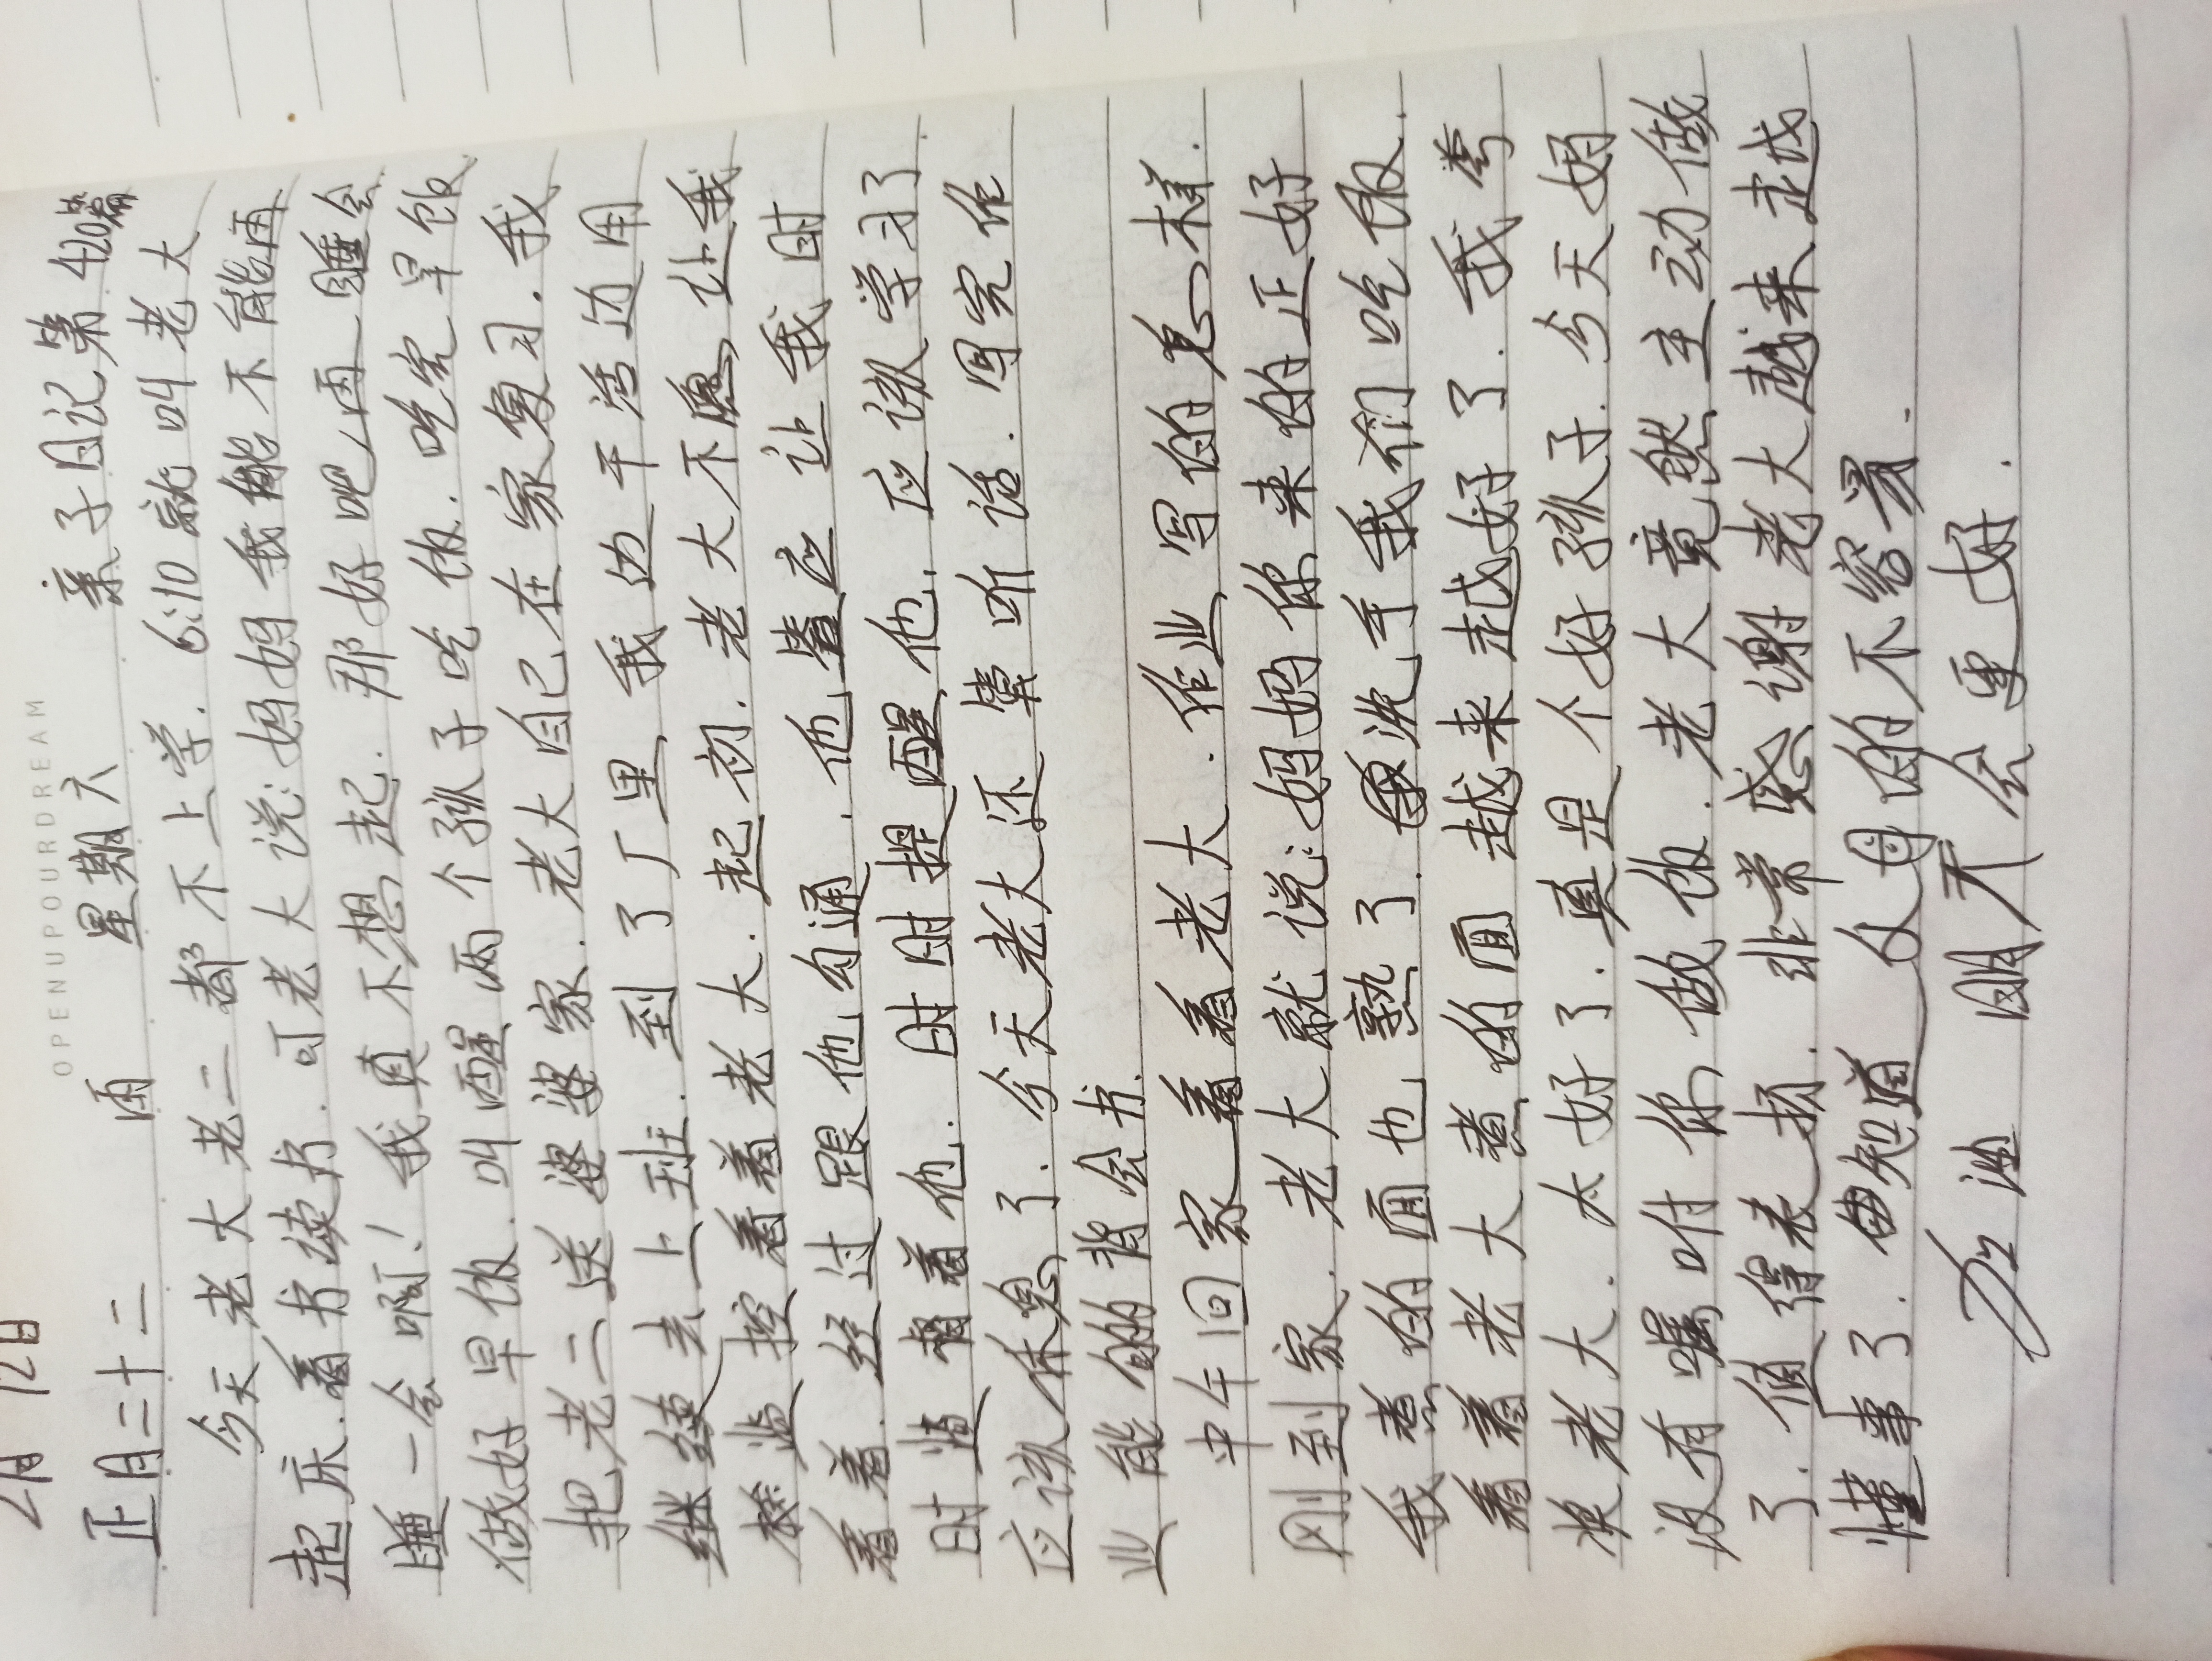 2月12日
OPENUPOURDREAM
正月二十二 雨 星期六 亲子日记第420篇
今天老大老二都不上学.6:10就叫老大
起床.看书读书.可老大说:妈妈我能不能再
睡一会啊!我真不想起.那好吧,再睡会
做好早饭.叫醒两个孩子吃饭.吃完早饭
把老二送婆婆家.老大自己在家复习.我
继续去上班.到了厂里,我边干活边用
监控看着老大.起初.老大不愿让我
看着.经过跟他勾通.他答应让我时
时监督着他.时时提醒他.应该学习了.
应该休息了.今天老大还算听话.写完作
业能的背会书.
中午回家看着老大.作业写的怎么样.
刚到家.老大就说:妈妈你来的正好
我煮的面也熟了.洗手我们吃饭.
看着老大煮的面越来越好了.我夸
奖老大.太好了.真是个好孩子.今天妈
没有嘱咐你做饭.老大竟然主动做
了.值得表扬.非常感谢老大越来越
懂事了.知道父母的不容易.
加油 明天会更好.